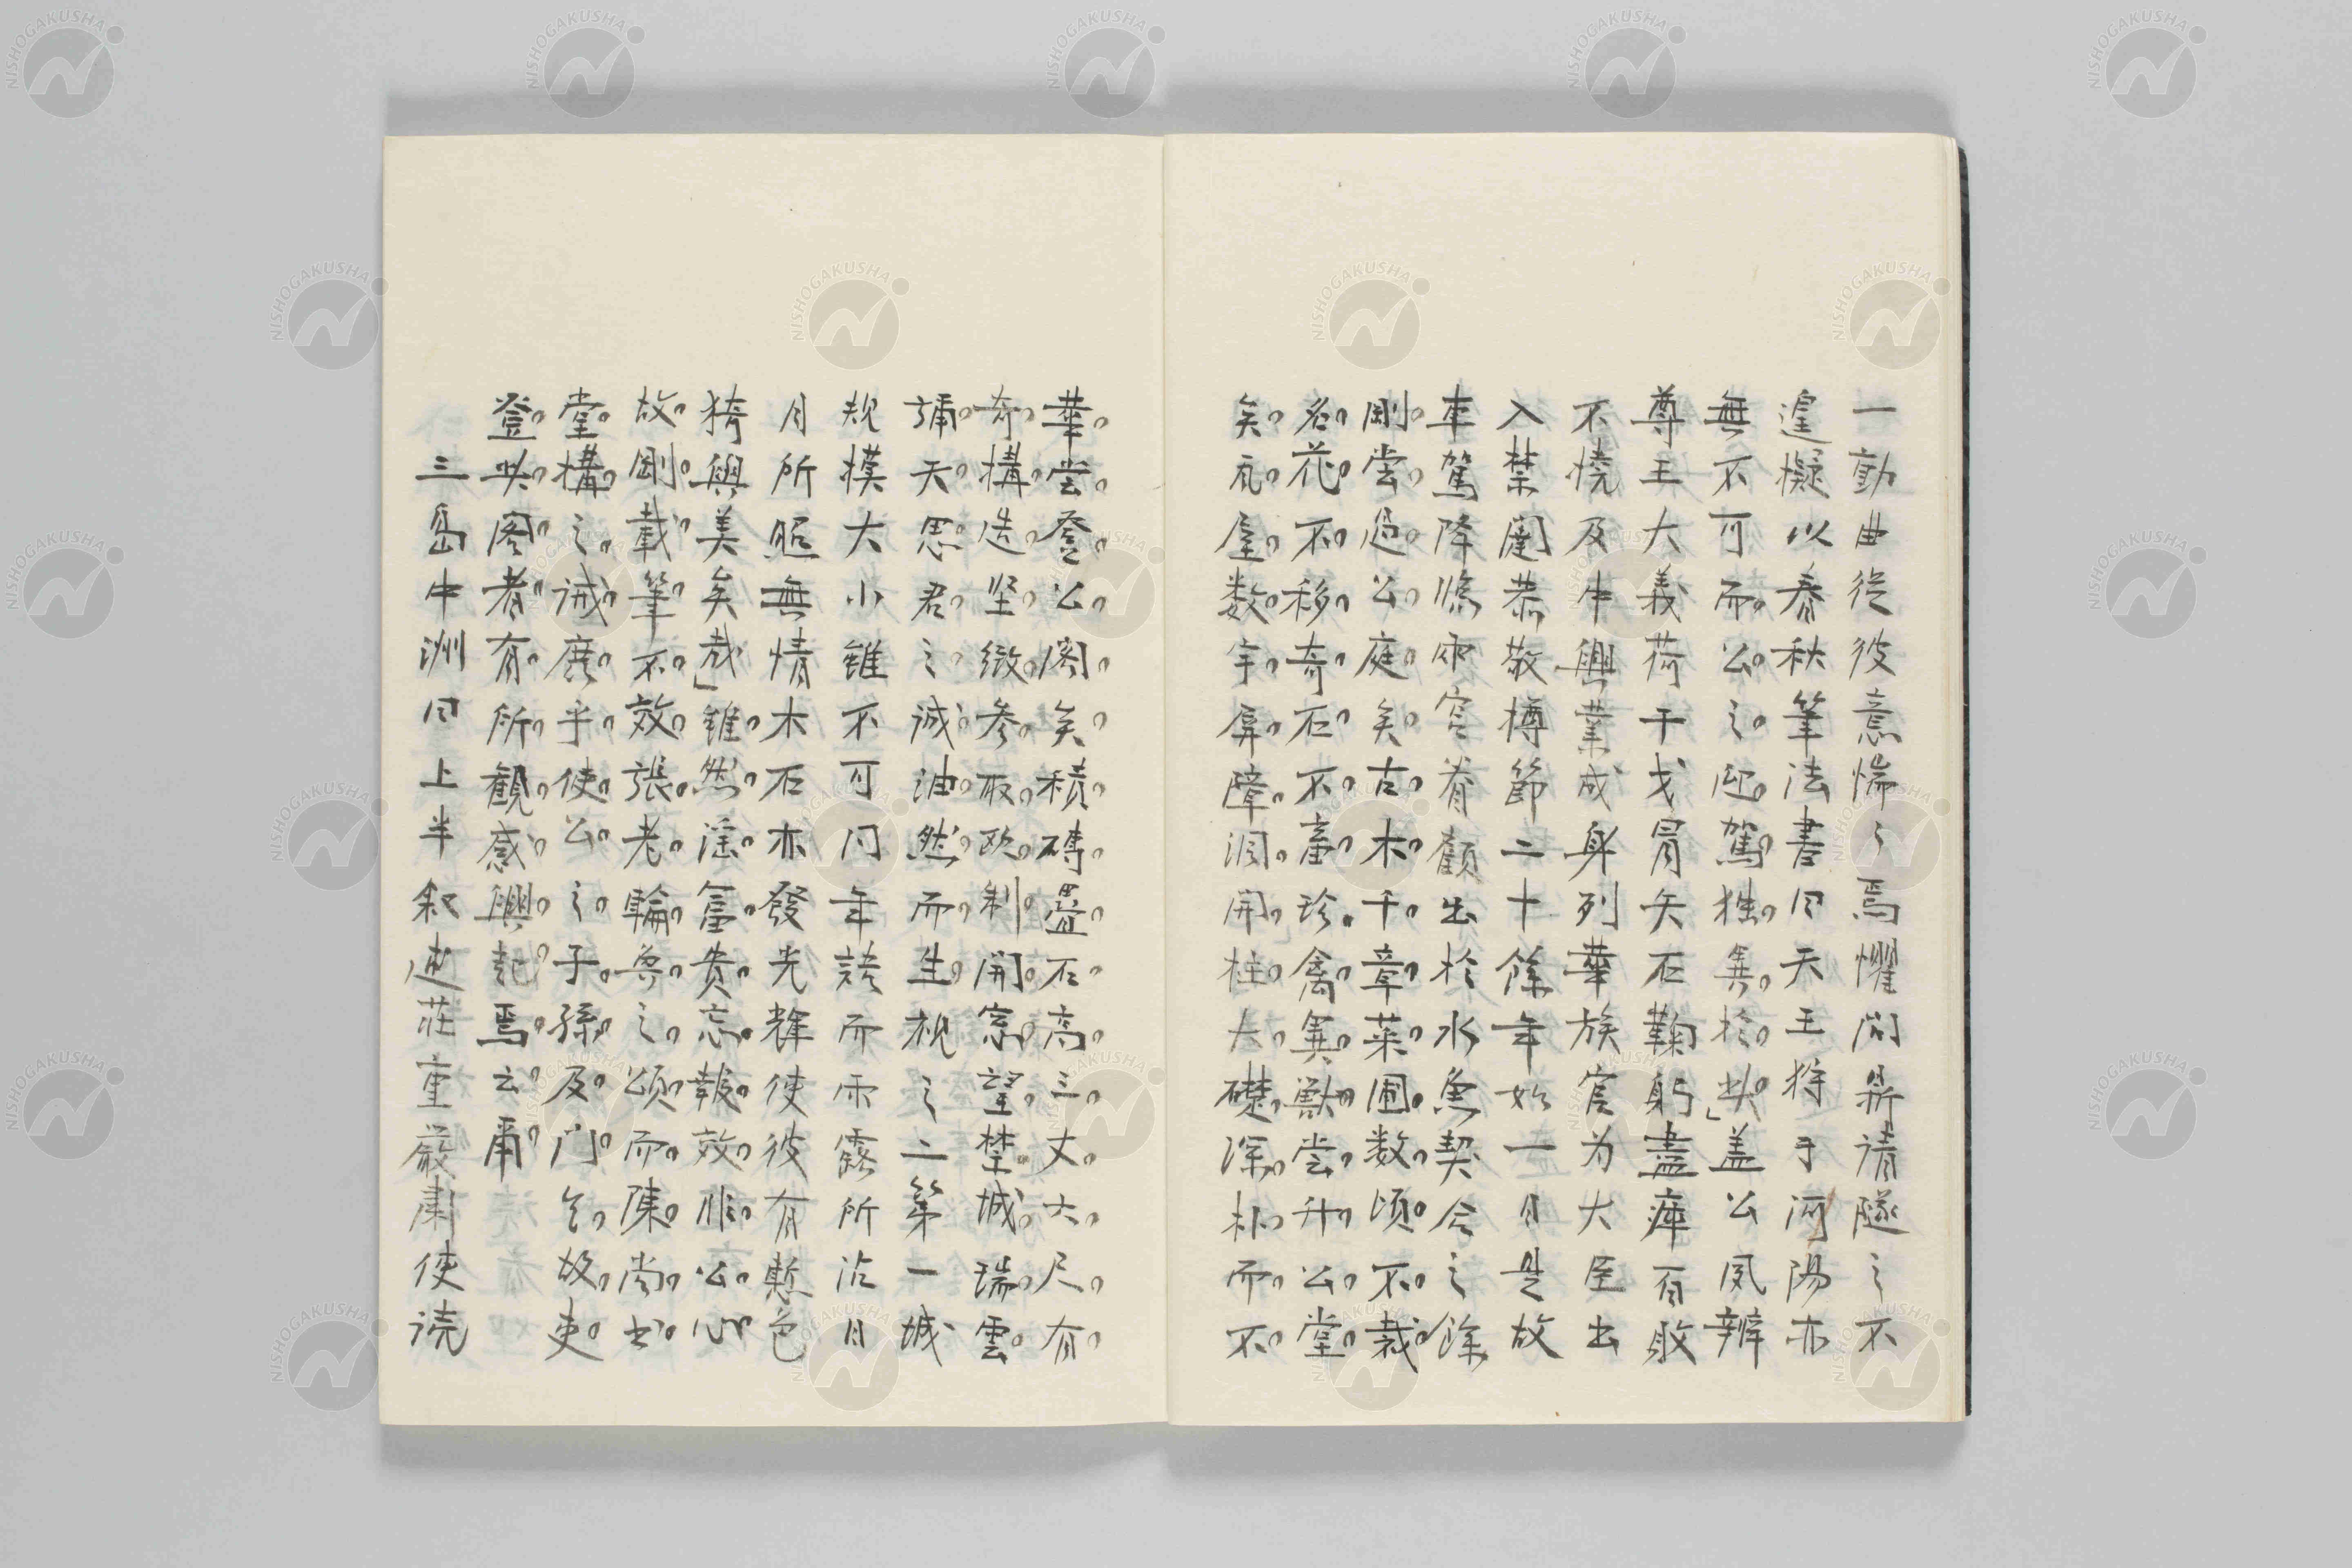 一勤曲從彼意惴々焉懼問鼎請隧之不
遑擬以春秋筆法書曰天王狩于河陽亦
無不可而公之迎駕獨異於此」蓋公夙辨
尊王大義荷干戈冒矢石鞠躬盡瘁百敗
不撓及中興業成身列華族官为大臣出
入禁闥恭敬撙節二十餘年如一日是故
車駕降臨雨窓眷顧出於水魚契合之餘
剛嘗過公庭矣古木千章菜圃数頃不栽
名花不移奇石不畜珍禽異獣嘗升公堂
矣瓦屋数宇屏障洞開柱大礎深朴而不
華嘗登公閣矣積磚畳石高三丈大尺有
奇構造坚緻参取欧制開窓望禁城瑞雲
弥天思君之誠油然而生視之二第一城
規模大小雖不可同年語而雨露所沾日
月所照無情木石亦發光輝使彼有慙色
猗與美矣哉」雖然淫富貴忘報效非公心
故剛載筆不效張老輪奐之頌而陳尚书
堂構之誡庶乎使公之子孫及門生故吏
登此閣者有所觀感興起焉云爾
三島中洲曰上半叙述莊重嚴肅使読